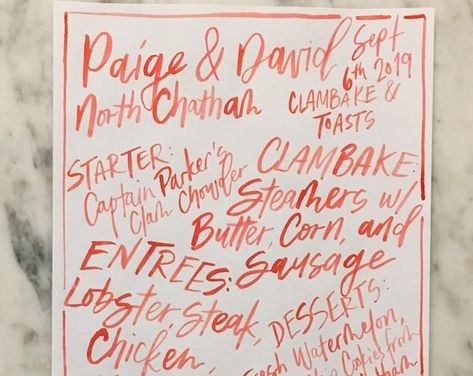 Paige & David
Sept
6th 2019
North Chatham
CLAMBAKE &
TOASTS
STARTER:
Captain Parker's
Clam Chowder
CLAMBAKE:
Steamers w/
Butter, Corn, and
Sausage
ENTREES:
Lobster, Steak,
Chicken,
DESSERTS:
Fresh Watermelon,
Cookies from